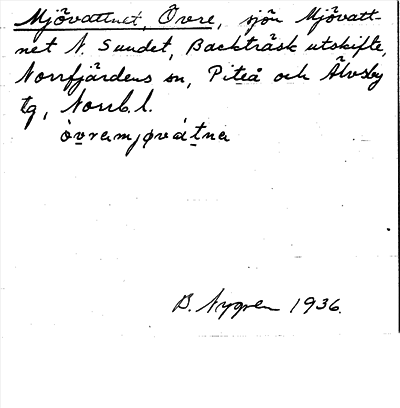 Mjövattnet, Övre, sjön Mjövatt-
net N. Sundet, Backträsk utskifte,
Norrfjärdens sn, Piteå och Älvsby
tg, Norrb. l.
òvramjøvátna
B. Nygren 1936.